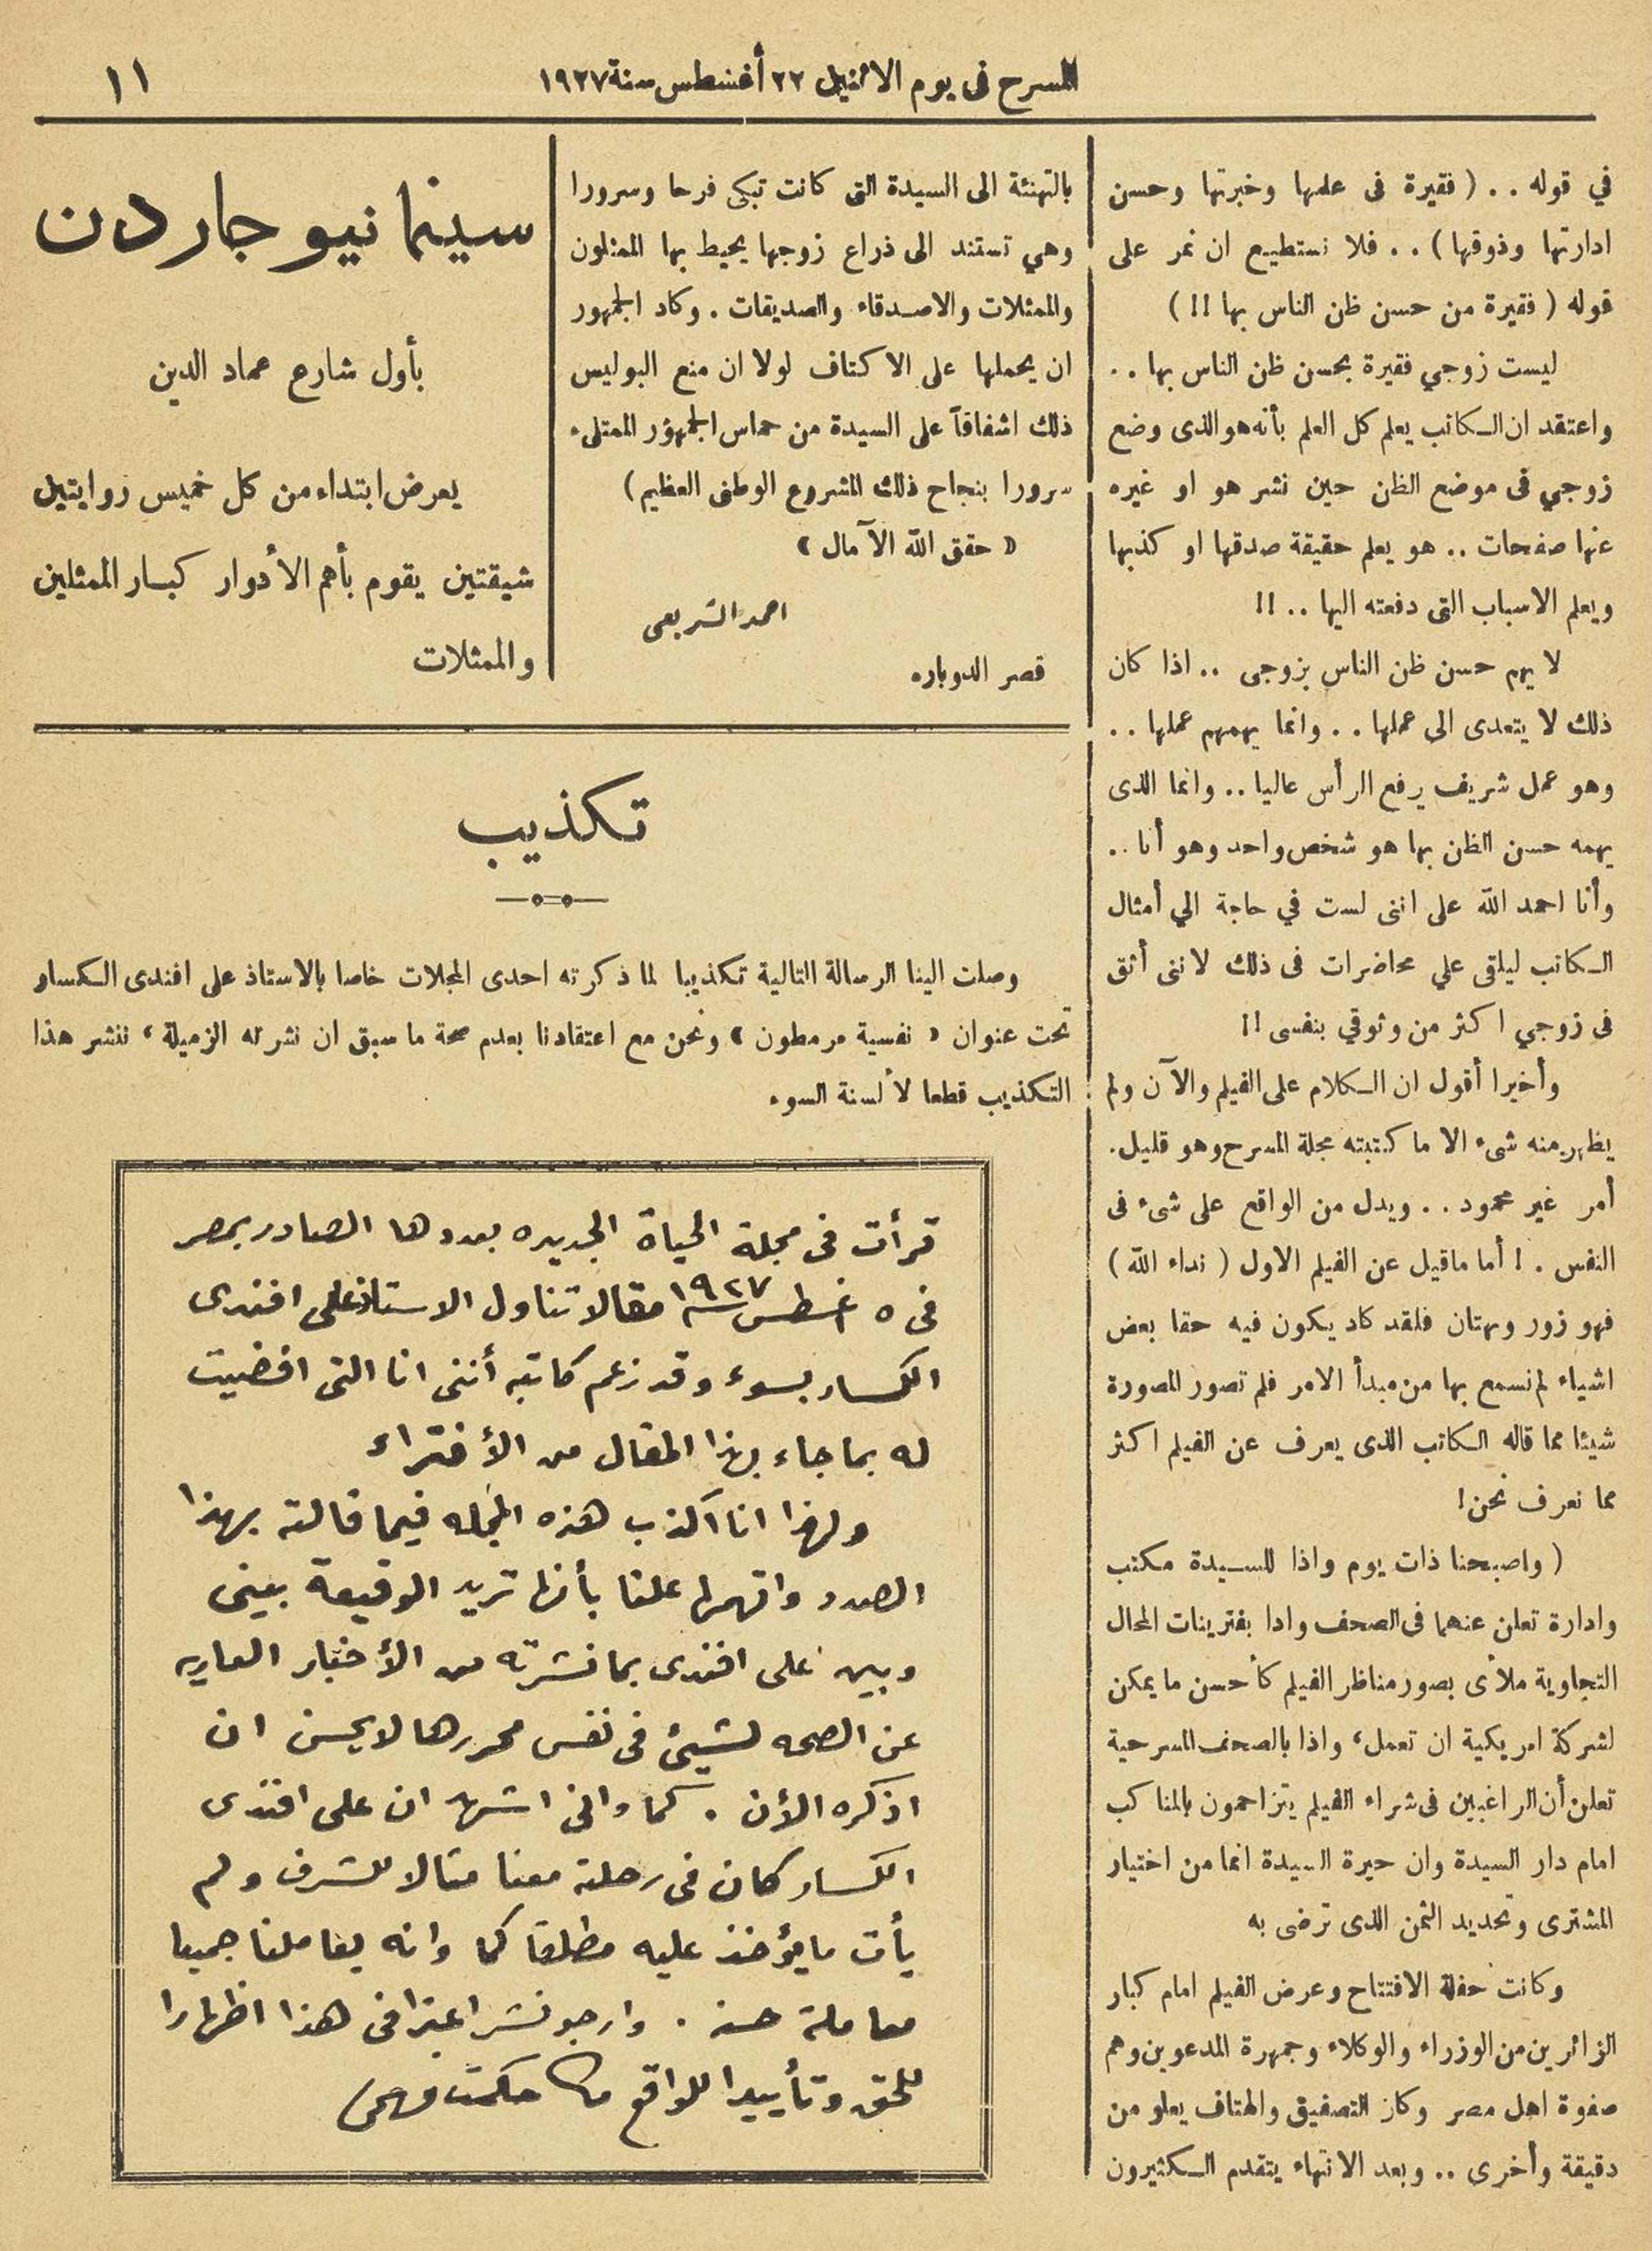 المسرح فى يوم الاثنين ٢٢ أغسطس سنة ١٩٢٧
١١
في قوله . . ( فقيرة فى علمها وخبرتها وحسن
ادارتها وذوقها ) . . فلا نستطيع ان نمر على
قوله ( فقيرة من حسن ظن الناس بها !! )
ليست زوجي فقيرة بحسن ظن الناس بها . .
واعتقد ان الكاتب يعلم كل العلم بأنه هو الذى وضع
زوجي فى موضع الظن حين نشر هو او غيره
عنها صفحات . . هو يعلم حقيقة صدقها او كذبها
ويعلم الاسباب التى دفعته اليها . . !!
لا يهم حسن ظن الناس بزوجى . . اذا كان
ذلك لا يتعدى الي عملها . . وانما يهمهم عملها . .
وهو عمل شريف يرفع الرأس عاليا . . وانما الذى
يهمه حسن الظن بها هو شخص واحد وهو أنا . .
وأنا احمد الله على اننى لست في حاجة الي أمثال
الكاتب ليلقى علي محاضرات فى ذلك لاننى أثق
فى زوجي اكثر من وثوقي بنفسى !!
وأخيرا أقول ان الكلام على الفيلم والآن ولم
يظهر منه شىء الا ما كتبته مجلة المسرح وهو قليل .
أمر غير محمود . . ويدل من الواقع على شىء فى
النفس . ! أما ماقيل عن الفيلم الاول ( نداء الله )
فهو زور وبهتان فلقد كاد يكون فيه حقا بعض
اشياء لم نسمع بها من مبدأ الامر فلم تصور المصورة
شيئا مما قاله الكاتب الذى يعرف عن الفيلم اكثر
مما نعرف نحن !
( واصبحنا ذات يوم واذا للسيدة مكتب
وادارة تعلن عنهما فى الصحف وادا بفترينات المحال
التجاوية ملأى بصور مناظر الفيلم كأحسن ما يمكن
لشركة امريكية ان تعمل ، واذا بالصحف المسرحية
تعلن أن الراغبين فى شراء الفيلم يتزاحمون بالمناكب
امام دار السيدة وان حيرة السيدة انما من اختيار
المشترى وتحديد الثمن الذى ترضى به
وكانت حفلة الافتتاح وعرض الفيلم امام كبار
الزائرين من الوزراء والوكلاء وجمهرة المدعوين وهم
صفوة اهل مصر وكاز التصفيق والهتاف يعلو من
دقيقة وأخرى . . وبعد الانتهاء يتقدم الكثيرون
بالتهنئة الى السيدة التى كانت تبكى فرحا وسرورا
وهي تستند الى ذراع زوجها يحيط بها الممثلون
والممثلات والاصدقاء والصديقات . وكاد الجمهور
ان يحملها على الاكتاف لولا ان منع البوليس
ذلك اشفاقاً على السيدة من حماس الجمهور الممتلىء
سرورا بنجاح ذلك المشروع الوطنى العظيم )
« حقق الله الآمال »
احمد الشريعى
قصر الدوباره
سينما نيو جاردن
بأول شارع عماد الدين
يعرض ابتداء من كل خميس روايتين
شيقتين يقوم بأهم الأدوار كبار الممثلين
والممثلات
تكذيب
وصلت الينا الرسالة التالية تكذيبا لما ذكرته احدى المجلات خاصا بالاستاذ على افندى الكسار
تحت عنوان « نفسية مرمطون » ونحن مع اعتقادنا بعدم صحة ما سبق ان نشرته الزميلة ، ننشر هذا
التكذيب قطعا لألسنة السوء
قرأت فى مجلة الحياة الجديده بعددها الصادر بمصر
فى ٥ اغسطس سنة ١٩٢٧ مقالا تناول الاستاذ على افندى
الكسار بسوء وقد زعم كاتبه أننى انا التى افضيت
له بما جاء بهذا المقال من الأفتراء
ولهذا انا اكذب هذه المجله فيما قالته بهذا
الصدد واتهمها علنا بأنها تريد الوقيعة بينى
وبين على افندى بما نشرته من الأخبار العاريه
عن الصحه لشيئ فى نفس محررها لايحسن ان
اذكره الأن . كما وانى اشهد ان على افندى
الكسار كان فى رحلته معنا مثالا للشرف ولم
يأت مايؤخذ عليه مطلقا كما وانه يعاملنا جميعا
معاملة حسنه . وارجو نشر اعترافى هذا اظهارا
للحق وتأييدا للواقع حكمت فهمى